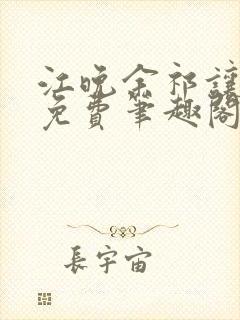 江晚余祁讓
免費筆趣閣
長宇宙